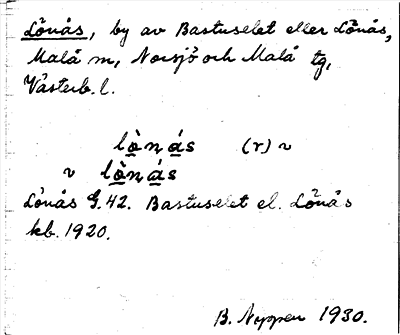 Lönås, by av Bastuselet eller Lönås,
Malå m, Norsjö och Malå tg,
Västerb. l.
lò̤nás (r) ~
~ lò̤nás
Lönås G.42. Bastuselet el. Lönås
kb. 1920.
B. Nyppen 1930.